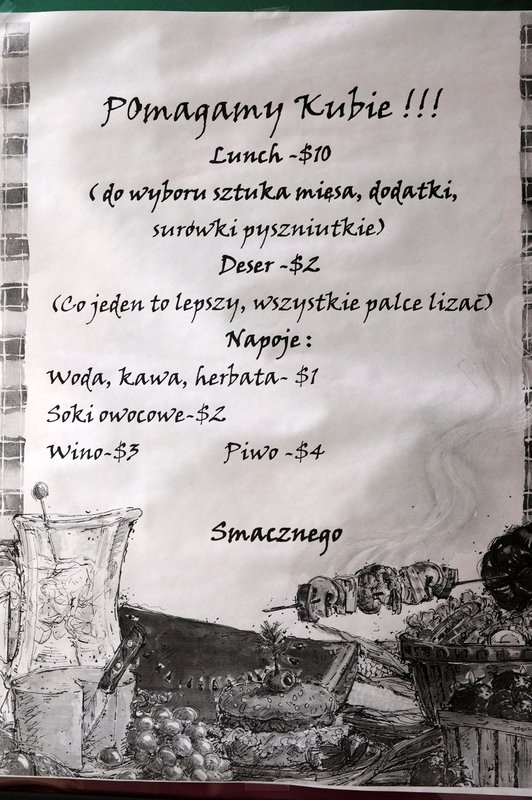 POmagamy Kubie !!!
Lunch -$10
( do wyboru sztuka mięsa, dodatki,
surówki pyszniutkie)
Deser -$2
(Co jeden to lepszy, wszystkie palce lizač)
Napoje :
Woda, kawa, herbata- $1
Soki owocowe-$2
Wino-$3 Piwo -$4
Smacznego